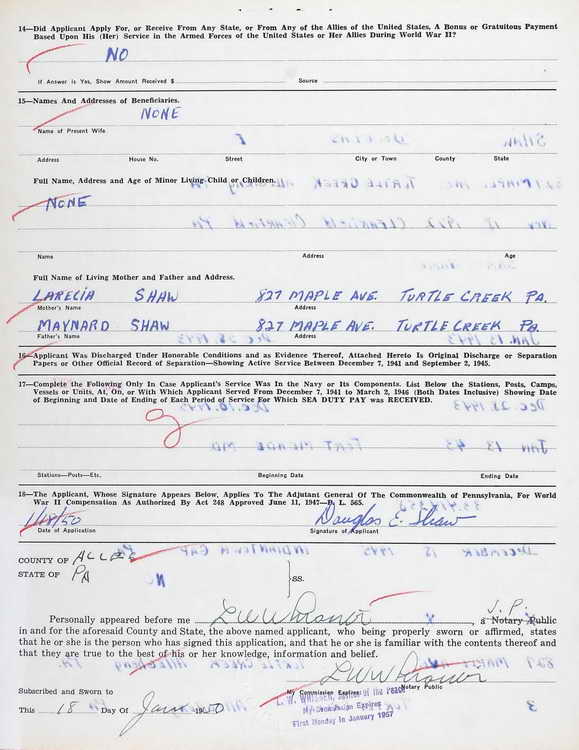 14—Did Applicant Apply For, or Receive From Any State, or From Any of the Allies of the United States, A Bonus or Gratuitous Payment
Based Upon His (Her) Service in the Armed Forces of the United States or Her Allies During World War II?
NO
If Answer is Yes, Show Amount Received $ Source
15—Names And Addresses of Beneficiaries.
NONE
Name of Present Wife
Address House No. Street City or Town County State
Full Name, Address and Age of Minor Living Child or Children.
NONE
Name Address Age
Full Name of Living Mother and Father and Address.
LARECIA SHAW 827 MAPLE AVE. TURTLE CREEK PA.
Mother's Name Address
MAYNARD SHAW 827 MAPLE AVE. TURTLE CREEK PA.
Father's Name Address
16—Applicant Was Discharged Under Honorable Conditions and as Evidence Thereof, Attached Hereto Is Original Discharge or Separation
Papers or Other Official Record of Separation—Showing Active Service Between December 7, 1941 and September 2, 1945.
17—Complete the Following Only In Case Applicant's Service Was In the Navy or Its Components. List Below the Stations, Posts, Camps,
Vessels or Units, At, On, or With Which Applicant Served From December 7, 1941 to March 2, 1946 (Both Dates Inclusive) Showing Date
of Beginning and Date of Ending of Each Period of Service For Which SEA DUTY PAY was RECEIVED.
Stations—Posts—Etc. Beginning Date Ending Date
18—The Applicant, Whose Signature Appears Below, Applies To The Adjutant General Of The Commonwealth of Pennsylvania, For World
War II Compensation As Authorized By Act 248 Approved June 11, 1947—P. L. 565.
1/18/50 Douglas E. Shaw
Date of Application Signature of Applicant
COUNTY OF
STATE OF PA
SS.
J. P.
Personally appeared before me , a Notary Public
in and for the aforesaid County and State, the above named applicant, who being properly sworn or affirmed, states
that he or she is the person who has signed this application, and that he or she is familiar with the contents thereof and
that they are true to the best of his or her knowledge, information and belief.
Notary Public
Subscribed and Sworn to My Commission Expires:
Justice of the Peace
This 18 Day Of Jan 1950 My Commission Expires
First Monday in January 1957